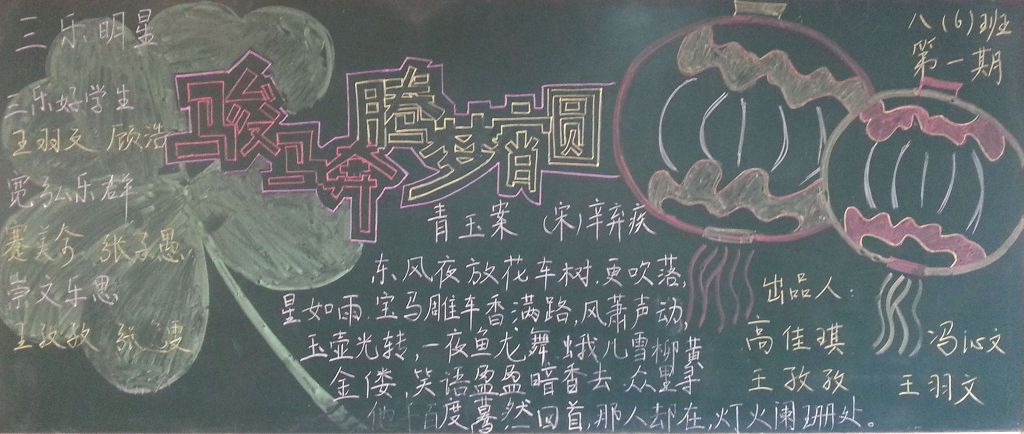 三乐明星
三乐好学生
王羽文 顾浩
宽弘乐群
张子愚
崇文乐思
王孜孜 张
骏马奔腾梦想圆
青玉案 (宋)辛弃疾
东风夜放花车树.更吹落,
星如雨.宝马雕车香满路,风萧声动,
玉壶光转,一夜鱼龙舞.蛾儿雪柳黄
金偻,笑语盈盈暗香去.众里寻
他千百度蓦然回首,那人却在,灯火阑珊处。
八(6)班
第一期
出品人:
高佳琪 冯沁文
王孜孜 王羽文